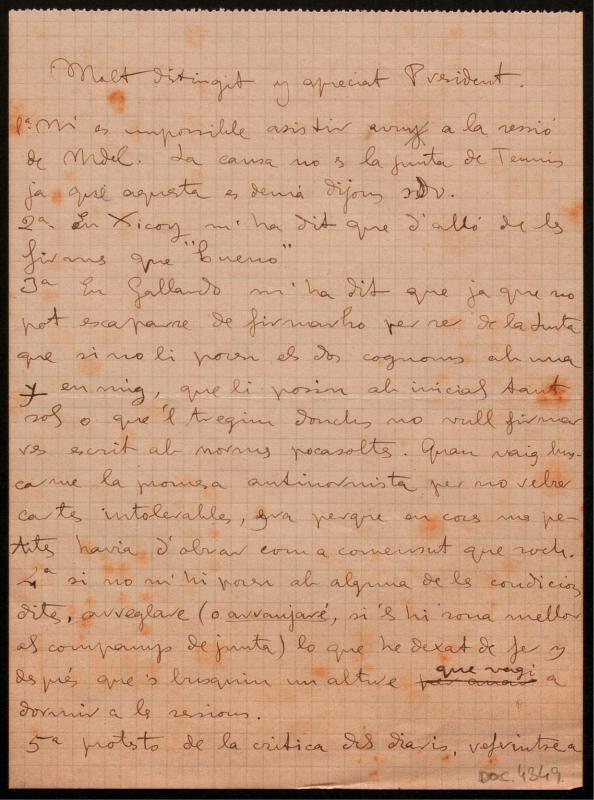 Molt distingit y apreciat President.
1ª. M'és impossible asistir avuy a la sessió
de Mdel. La causa no es la junta de Tennis
ja que aquesta es demá dijous
2ª. En Xicoy m'ha dit que d'alló de les
firmes que "bueno"
3ª En Gallardo m'ha dit que ja que no
pot escaparse de firmarho per ser de la Junta
que si no li posen els dos cognoms ab una
y en mig, que li posin ab inicials tant
sols o que 'l treguin donchs no vull firmar
res escrit ab normes pocasoltes. Quan vaig bus-
carme la promesa antinormista per no rebrer
cartes intolerables, era perque en coses mes pe-
tites havia d'obrar com a consensut que soch.
4ª si no m'hi posen ab alguna de les condicions
dites, arreglaré (o arranjaré, si 'ls hi sona mellor
als companys de junta) lo que he dexat de fer y
després que 's busquin un altre per anar que vagi a
dormir a les sessions.
5ª protesto de la critica dels diaris, referintse a
DOC. 4349